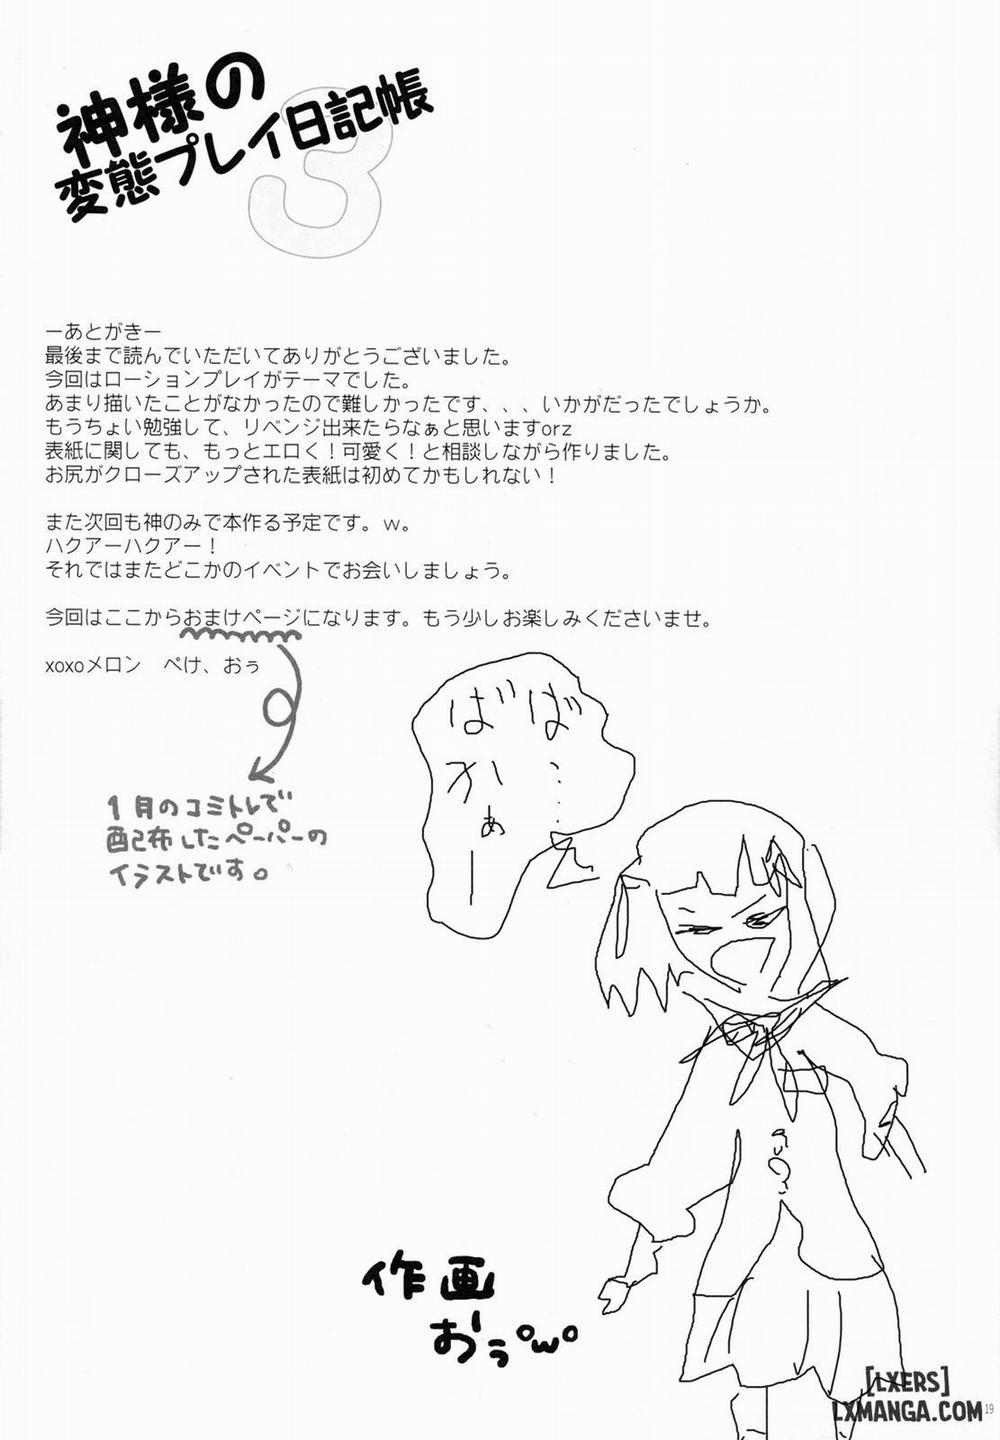 神様の
変態プレイ日記帳
3
ーあとがきー
最後まで読んでいただいてありがとうございました。
今回はローションプレイがテーマでした。
あまり描いたことがなかったので難しかったです、、、いかがだったでしょうか。
もうちょい勉強して、リベンジ出来たらなぁと思いますorz
表紙に関しても、もっとエロく！可愛く！と相談しながら作りました。
お尻がクローズアップされた表紙は初めてかもしれない！
また次回も神のみで本作る予定です。w。
ハクアーハクアー！
それではまたどこかのイベントでお会いしましょう。
今回はここからおまけページになります。もう少しお楽しみくださいませ。
xoxoメロン　ぺけ、おぅ
1月のコミトレで
配布したペーパーの
イラストです。
ばば…
かぁー
作画
おぅ°w°
[LXERS]
LXMANGA.COM
19